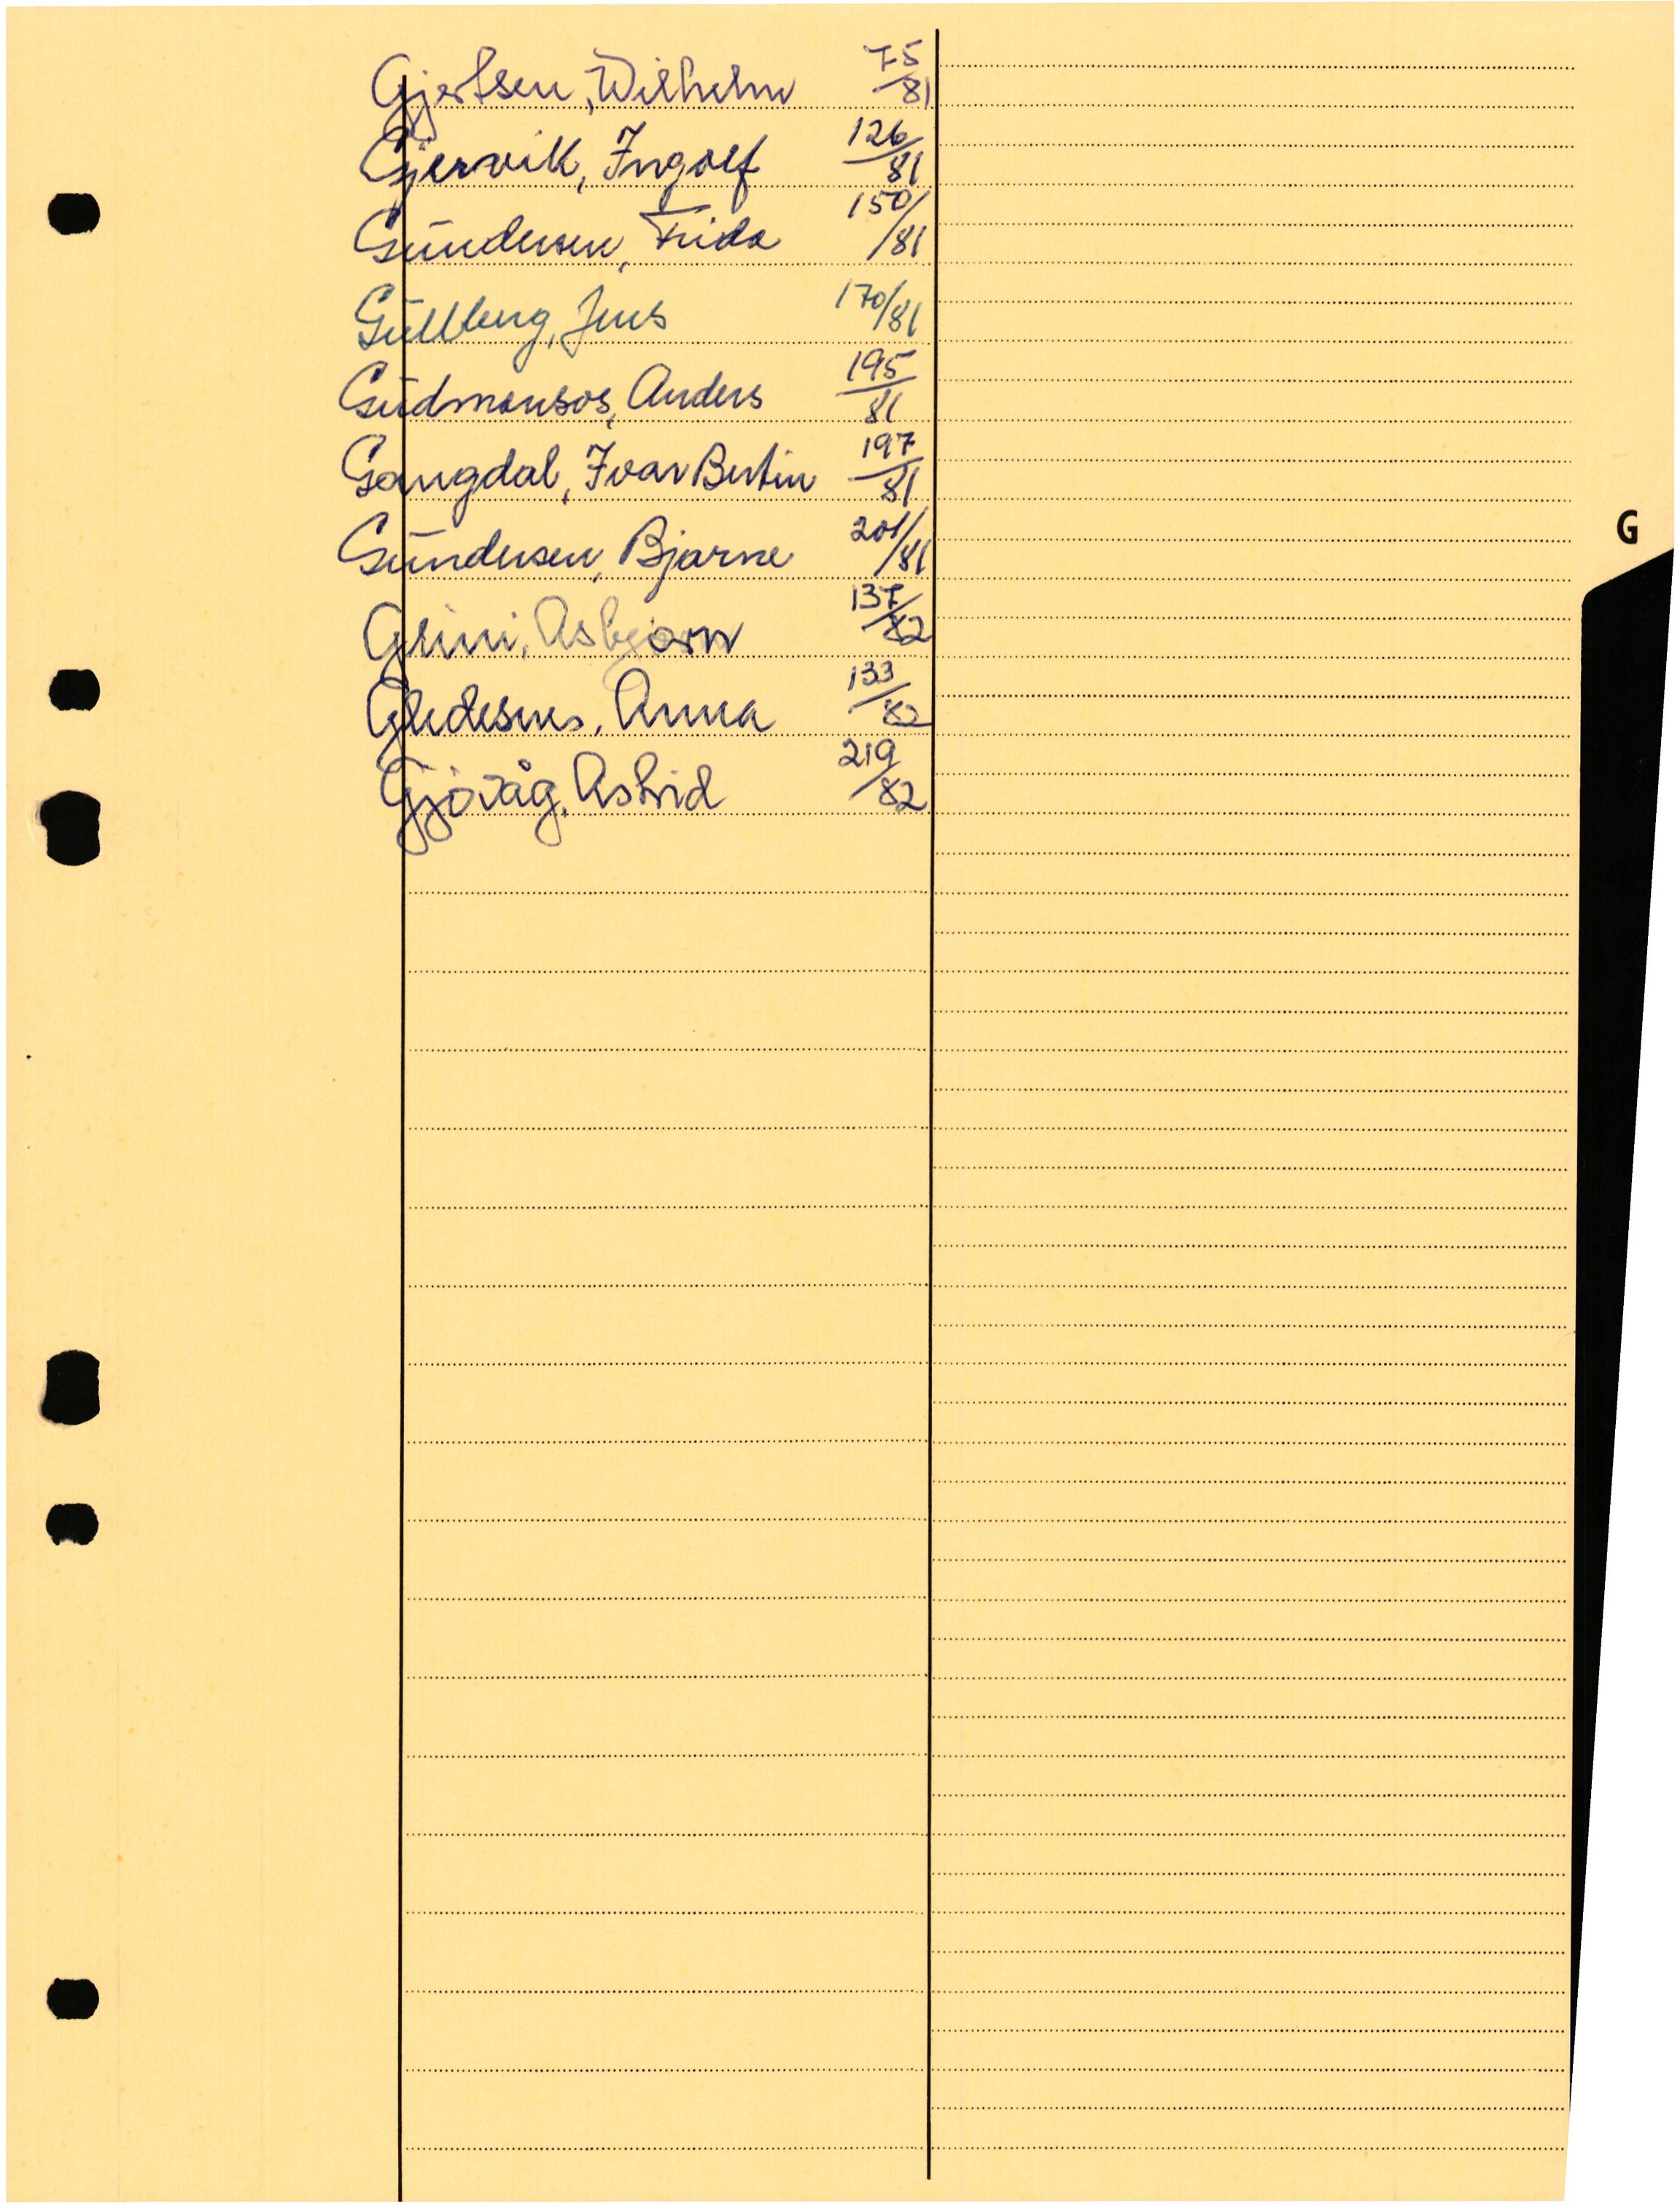 Gjertsen, Wilhelm 75/81
Gjervik, Ingolf 126/81
Gundersen, Frida 150/81
Gullberg, Jens 170/81
Gudmonsos, Anders 195/81
Gangdal, Ivar Bertin 197/81
Gundersen, Bjarne 201/81
G
Glini, Asbjørn 137/82
Gledesnes, Anna 133/82
Gjøvåg, Astrid 219/82